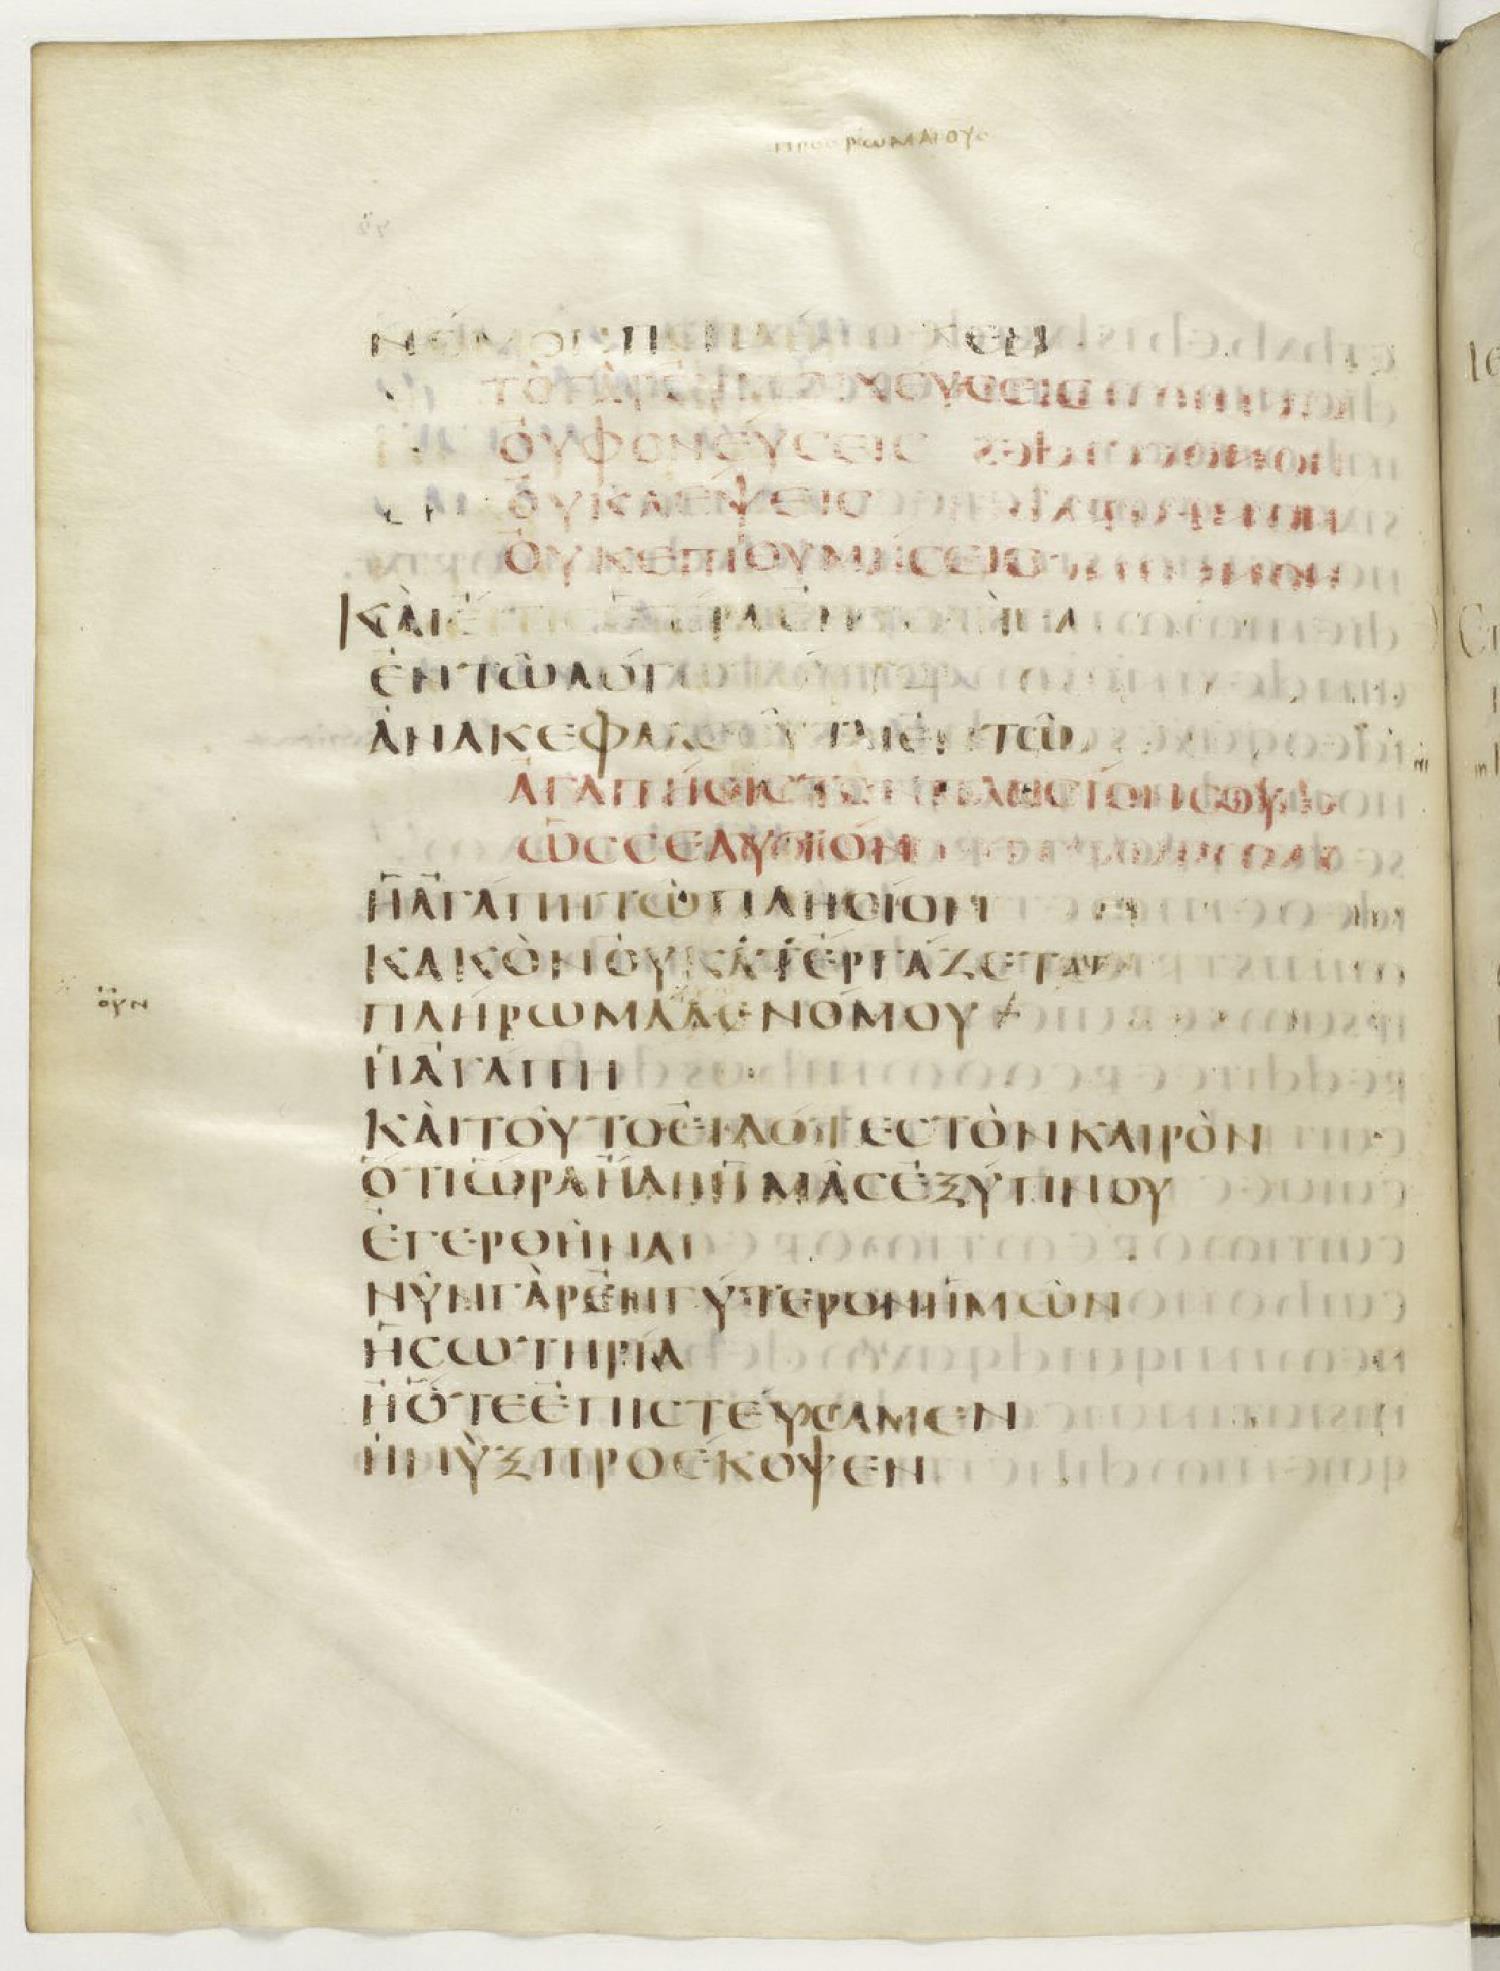 ΠΡΟΣ ΡΩΜΑΙΟΥΣ
ΝΟΜΟΝ ΠΕΠΛΗ ΚΕΝ
ΤΟ ΓΑΡ ΟΥ ΜΟΙΧΕΥΣΕΙΣ
ΟΥ ΦΟΝΕΥΣΕΙΣ
ΟΥ ΚΛΕΨΕΙΣ
ΟΥΚ ΕΠΙΘΥΜΗΣΕΙΣ
ΚΑΙ ΕΙ ΤΙΣ ΕΤΕΡΑ ΕΝΤΟΛΗ
ΕΝ ΤΩ ΛΟΓΩ
ΑΝΑΚΕΦΑΛΑΙΟΥΤΑΙ ΕΝ ΤΩ
ΑΓΑΠΗΣΙΣ ΤΟΝ ΠΛΗΣΙΟΝ ΣΟΥ
ΩΣ ΣΕΑΥΤΟΝ
Η ΑΓΑΠΗ ΤΩ ΠΛΗΣΙΟΝ
ΚΑΚΟΝ ΟΥ ΚΑΤΕΡΓΑΖΕΤΑΙ
ΟΥΝ
ΠΛΗΡΩΜΑ ΔΕ ΝΟΜΟΥ
Η ΑΓΑΠΗ
ΚΑΙ ΤΟΥΤΟ ΕΙΔΟΤΕΣ ΤΟΝ ΚΑΙΡΟΝ
ΟΤΙ ΩΡΑ ΗΔΗ ΗΜΑΣ ΕΞ ΥΠΝΟΥ
ΕΓΕΡΘΗΝΑΙ
ΝΥΝ ΓΑΡ ΕΝΓΥΤΕΡΟΝ ΗΜΩΝ
Η ΣΩΤΗΡΙΑ
Η ΟΤΕ ΕΠΙΣΤΕΥΣΑΜΕΝ
Η ΝΥΞ ΠΡΟΕΚΟΨΕΝ